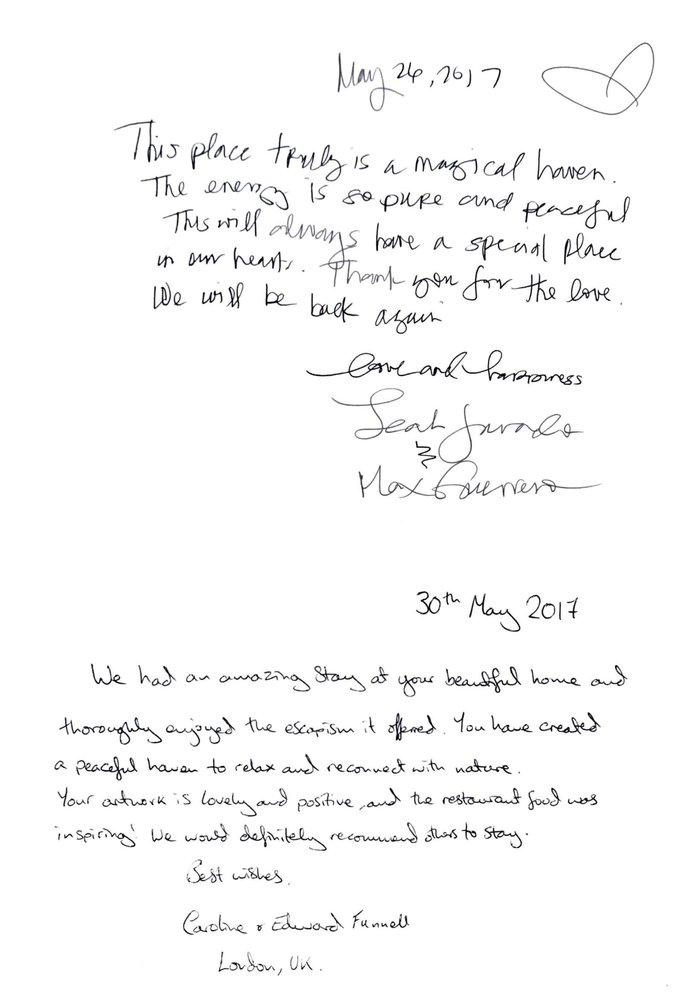 May 26, 2017
This place truly is a magical haven.
The energy is so pure and peaceful
This will always have a special place
in our hearts. Thank you for the love.
We will be back again
Love and happiness
Leah Jurado
&
Max Guerrero
30th May 2017
We had an amazing stay at your beautiful home and
thoroughly enjoyed the escapism it offered. You have created
a peaceful haven to relax and reconnect with nature.
Your artwork is lovely and positive, and the restaurant food was
inspiring! We would definitely recommend others to stay.
Best wishes,
Caroline & Edward Funnell
London, UK.